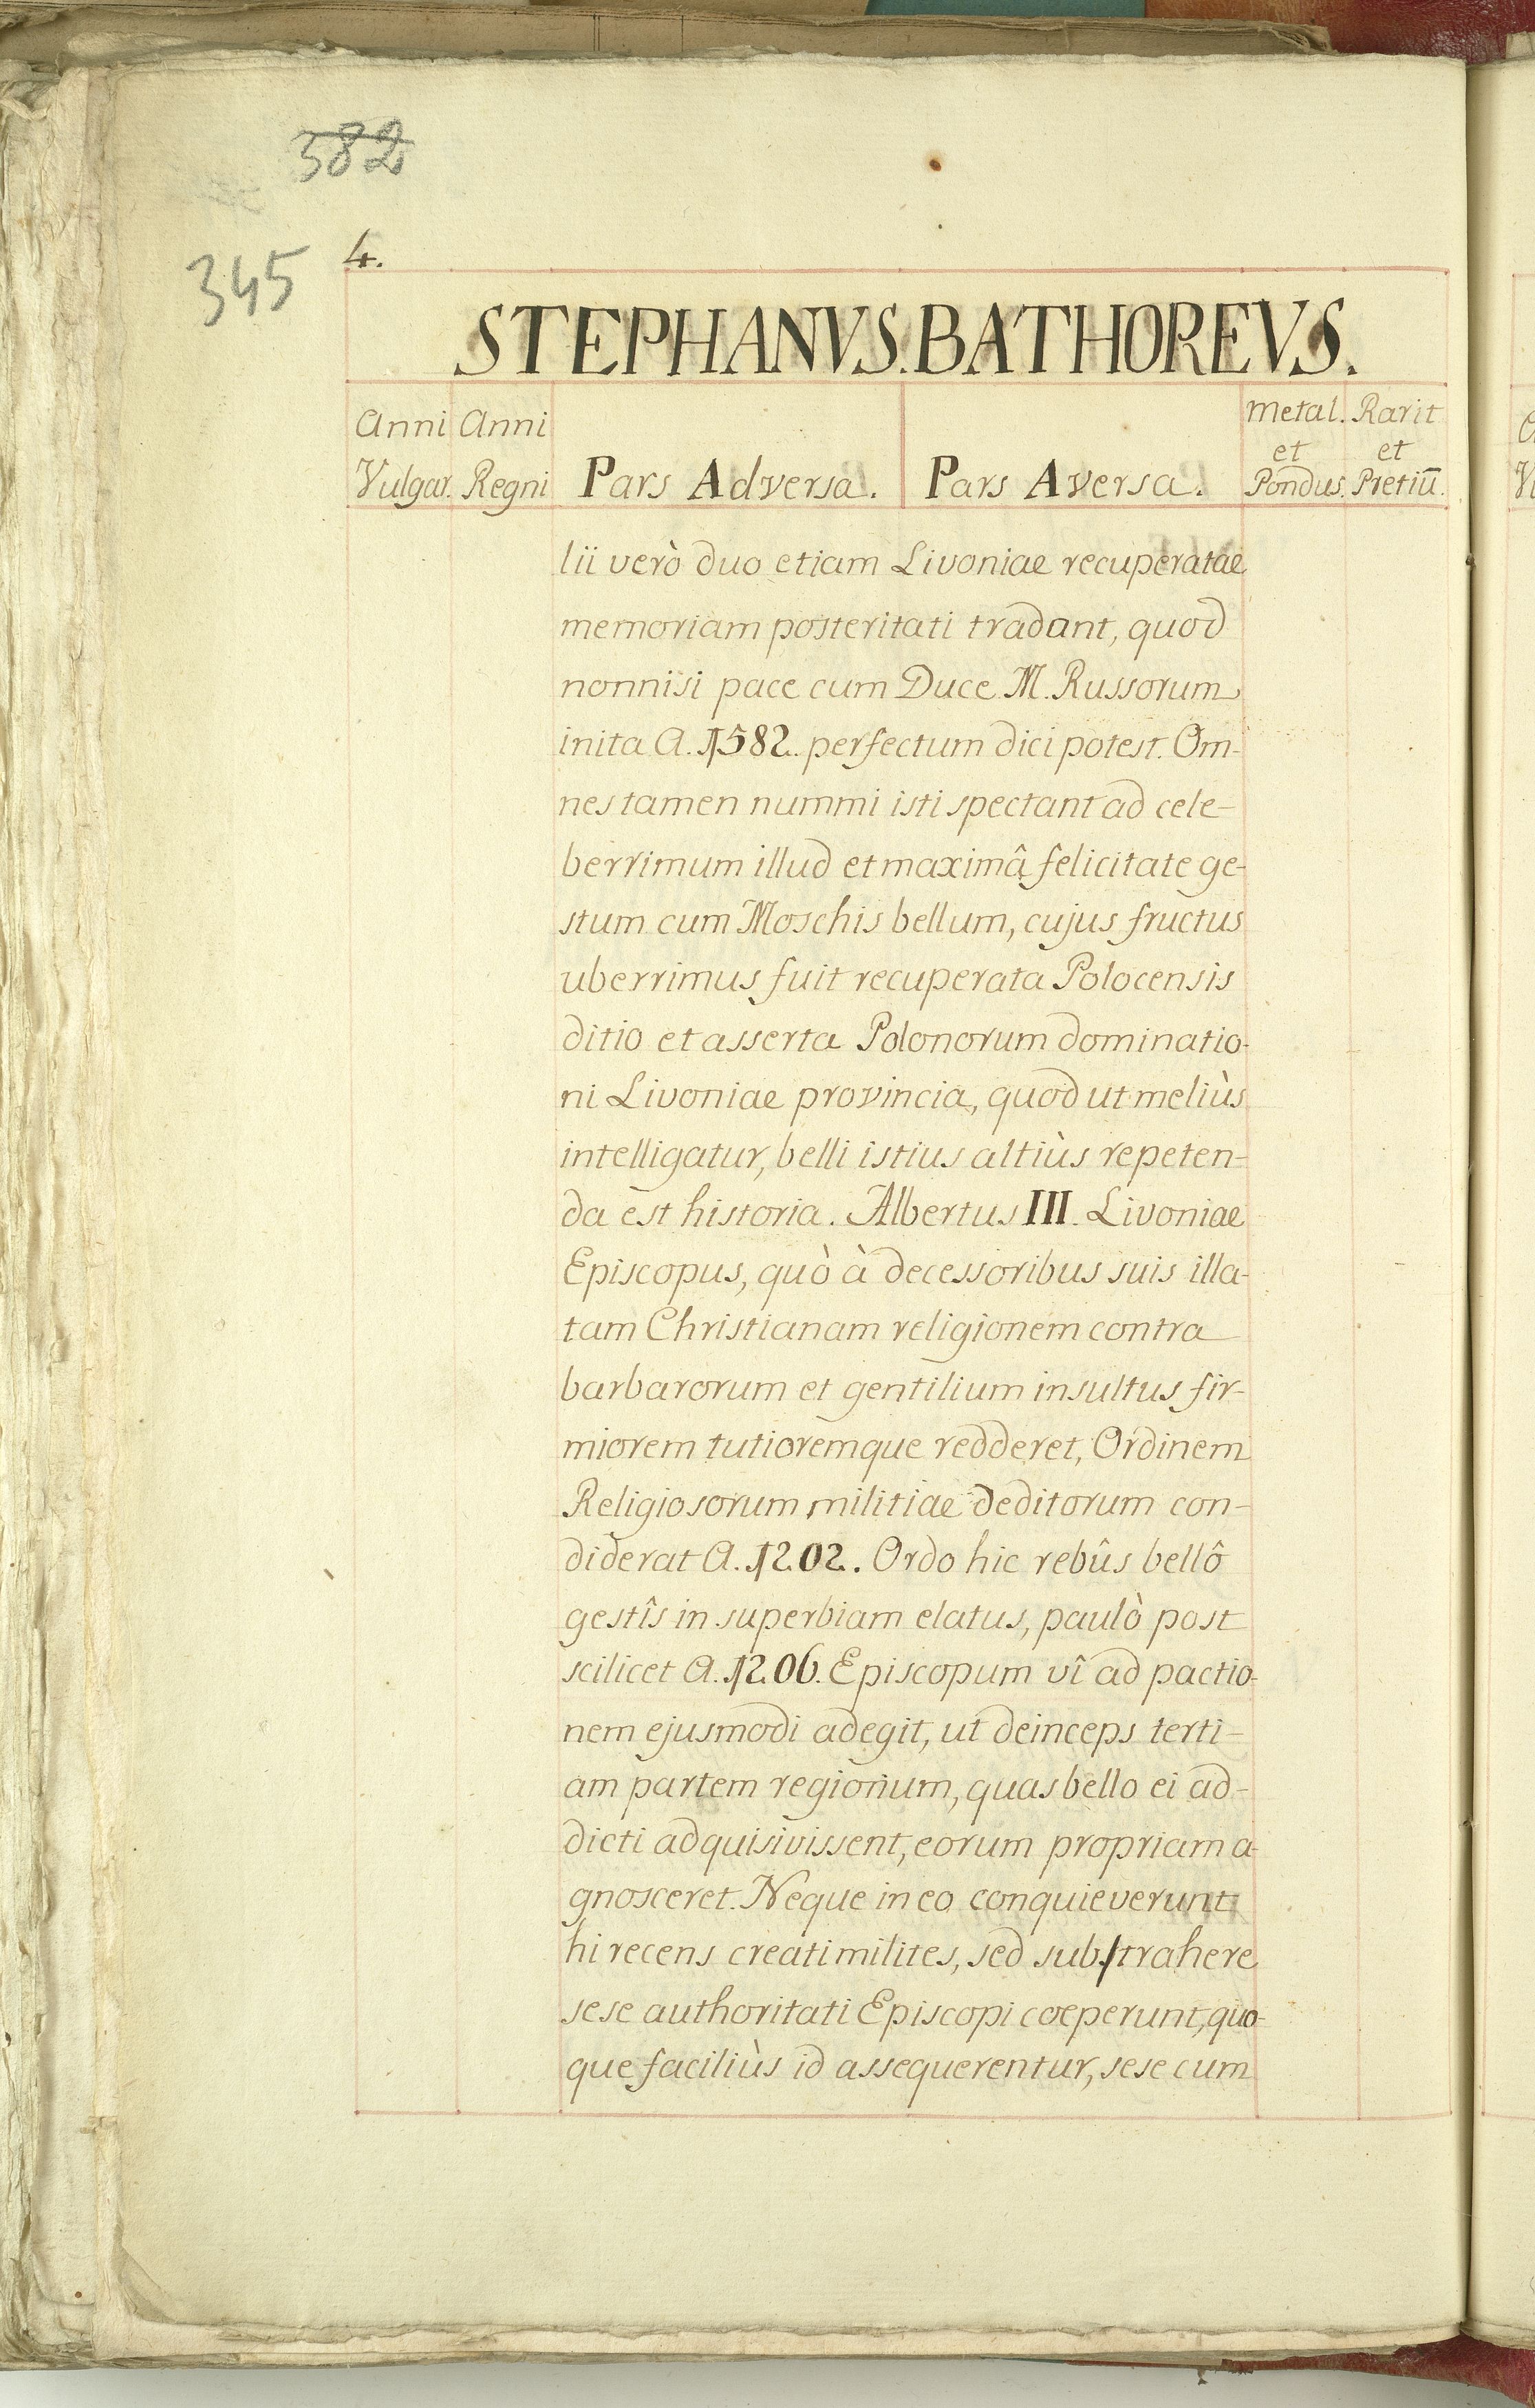 382
345
4.
STEPHANVS. BATHOREVS.
Anni Vulgar.
Anni Regni
Pars Adversa.
Pars Aversa.
Metal. et Pondus.
Rarit et Pretiū.
lii verò duo etiam Livoniae recuperatae
memoriam posteritati tradant, quod
nonnisi pace cum Duce M. Russorum
inita A. 1582. perfectum dici potest. Om-
nes tamen nummi isti spectant ad cele-
berrimum illud et maximâ felicitate ge-
stum cum Moschis bellum, cujus fructus
uberrimus fuit recuperata Polocensis
ditio et asserta Polonorum dominatio-
ni Livoniae provincia, quod ut meliùs
intelligatur, belli istius altiùs repeten-
da est historia. Albertus III. Livoniae
Episcopus, quò à decessoribus suis illa-
tam Christianam religionem contra
barbarorum et gentilium insultus fir-
miorem tutioremque redderet, Ordinem
Religiosorum militiae deditorum con-
diderat A. 1202. Ordo hic rebûs bellô
gestîs in superbiam elatus, paulò post
scilicet A. 1206. Episcopum vî ad pactio-
nem ejusmodi adegit, ut deinceps terti-
am partem regionum, quas bello ei ad-
dicti adquisivissent, eorum propriam a-
gnosceret. Neque in eo conquieverunt
hi recens creati milites, sed substrahere
sese authoritati Episcopi coeperunt, quo-
que faciliùs id assequerentur, sese cum